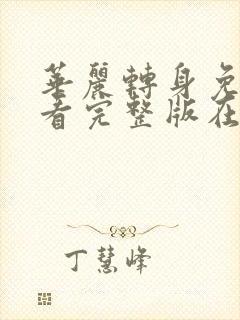 華麗轉身免
看完整版在
丁慧峰